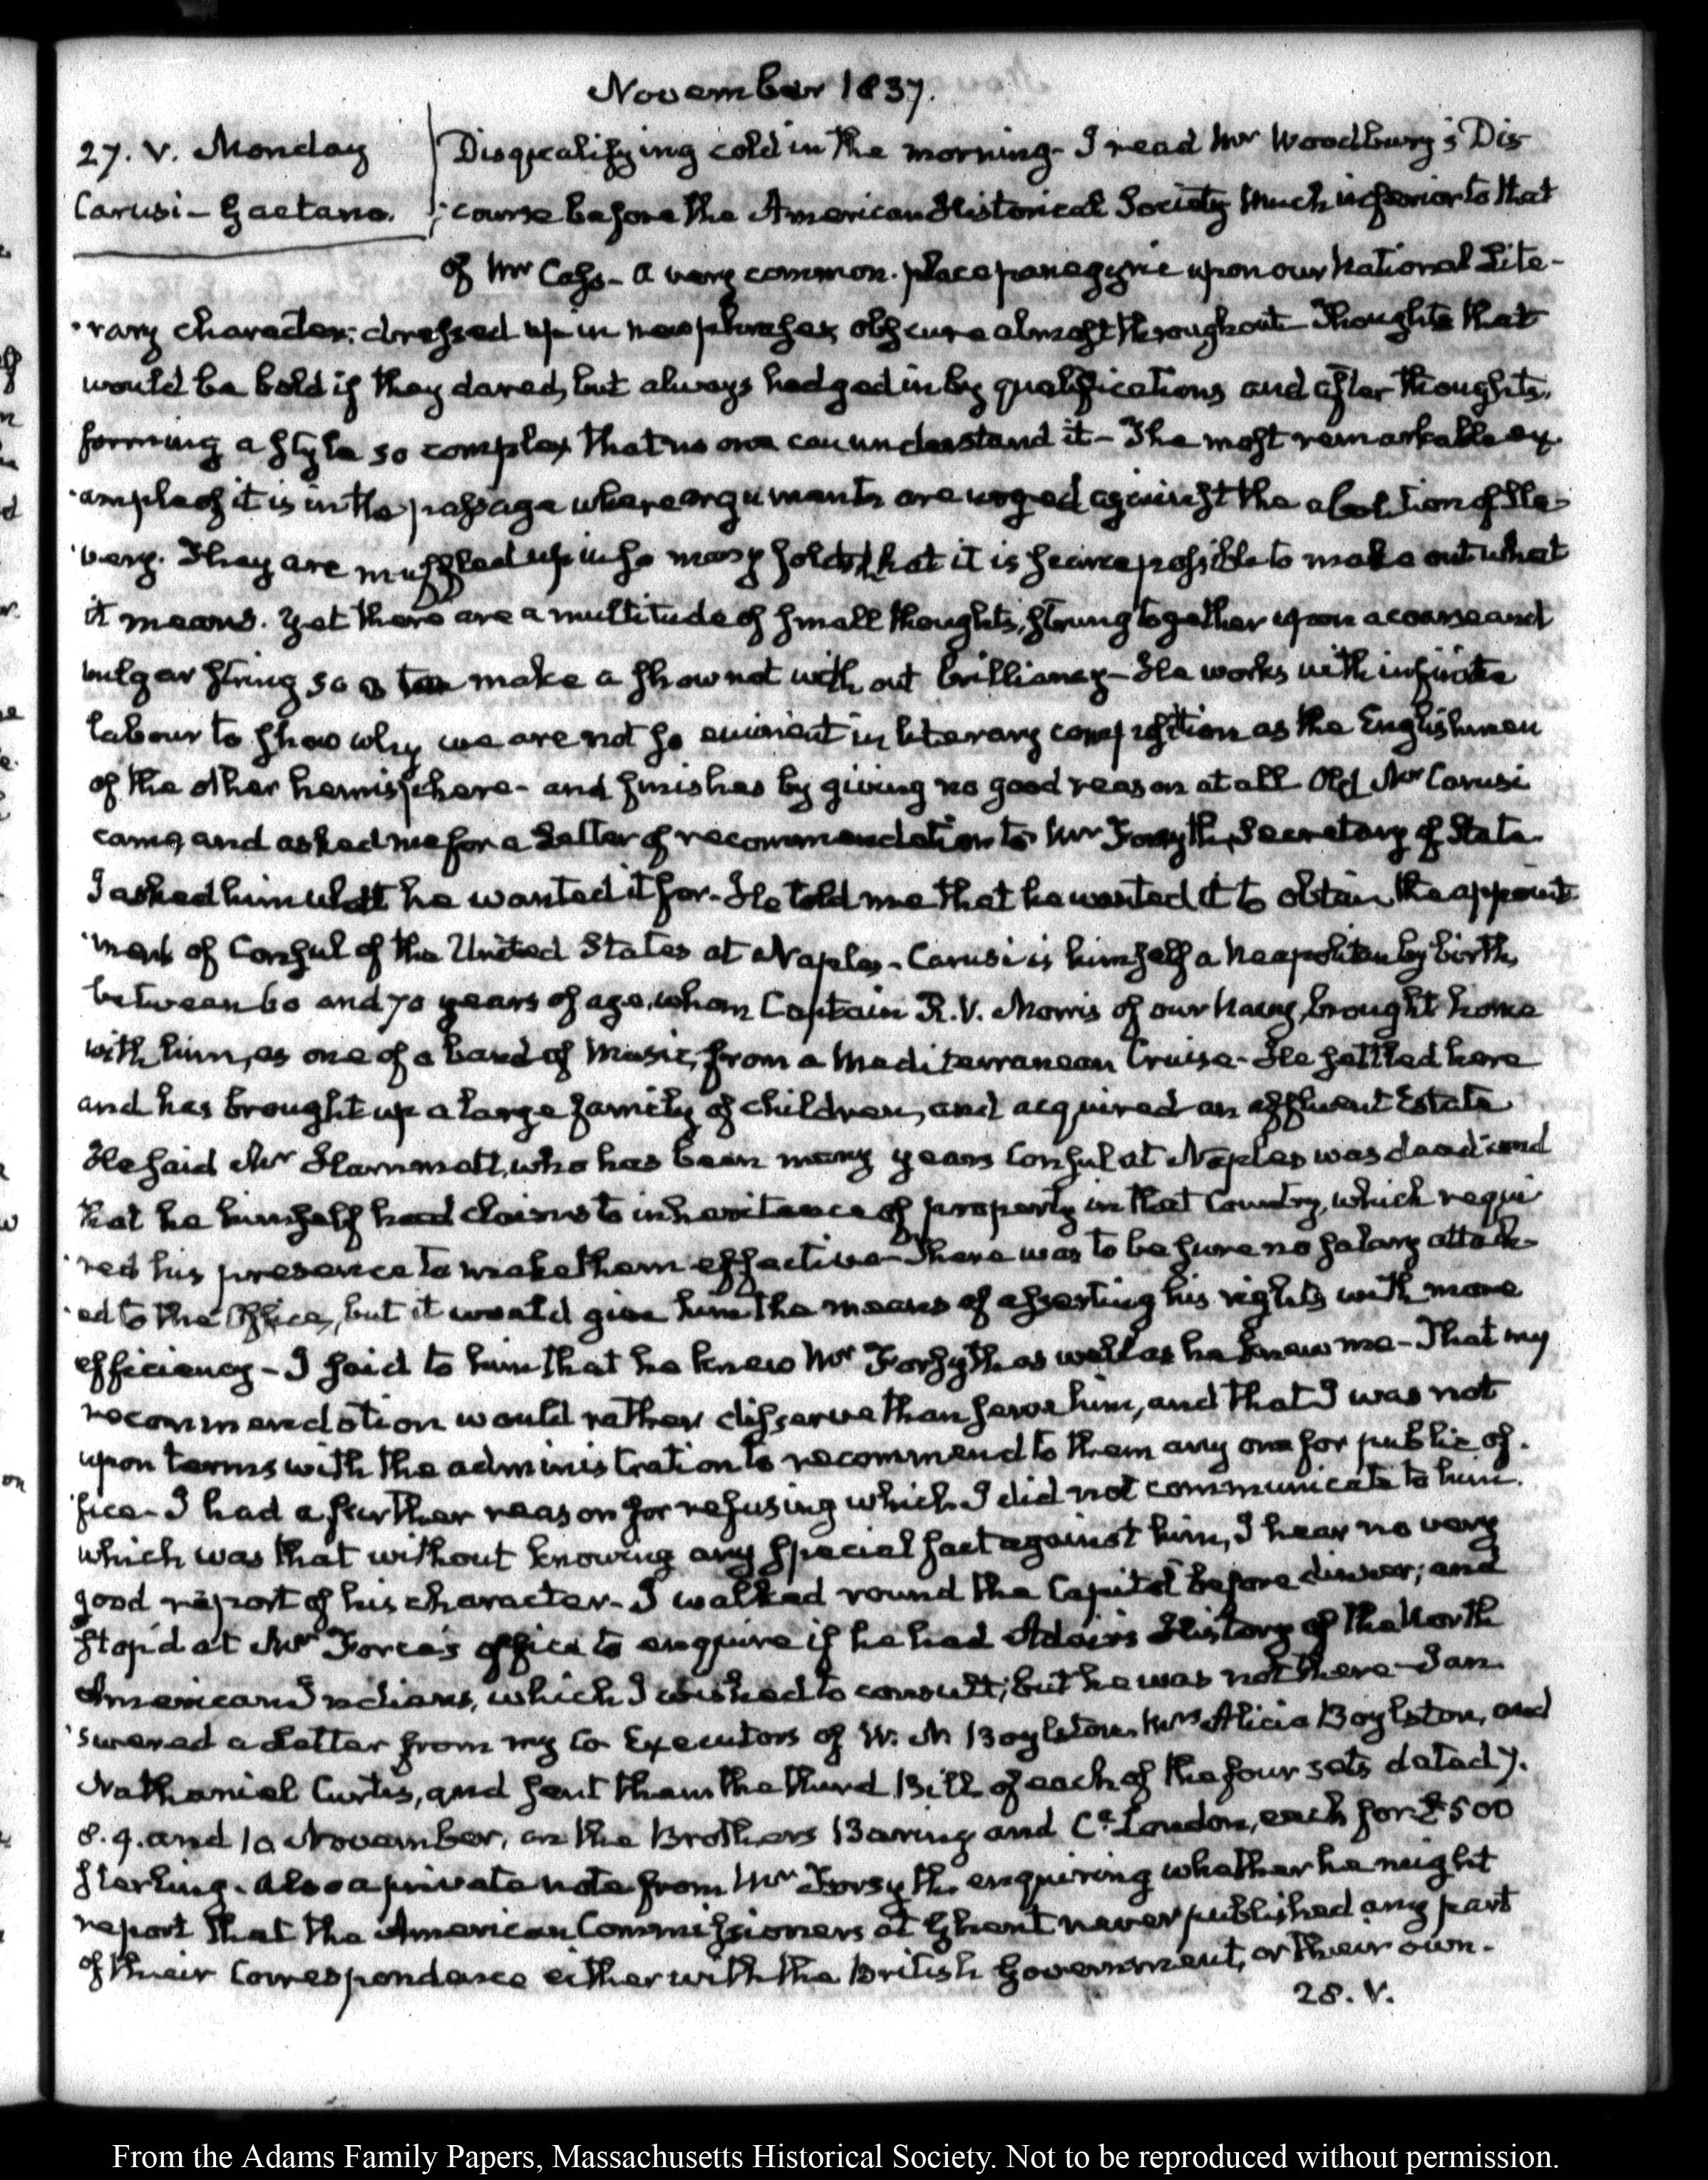 November 1837.
27. V. Monday
Carusi – Gaetano.
Disqualifying cold in the morning – I read Mr Woodbury's Dis
:course before the American Historical Society much inferior to that
of Mr Cass – a very common-place panegyric upon our National Lite-
:rary character; dressed up in new phrases, obscure almost throughout Thoughts that
would be bold if they dared, but always hedged in by qualifications and after thoughts,
forming a style so complex that no one can understand it – The most remarkable ex
:ample of it is in the passage where arguments are urged against the abolition of Sla-
:very. They are muffled up in so many folds that it is scarce possible to make out what
it means. Yet there are a multitude of small thoughts, strung together upon a coarse and
vulgar string so as to make a show not without brilliancy – He works with infinite
labour to show why we are not so eminent in literary composition as the Englishmen
of the other hemisphere – and finishes by giving no good reason at all Old Mr Carusi
came, and asked me for a Letter of recommendation to Mr Forsyth, Secretary of State
I asked him what he wanted it for – He told me that he wanted it to obtain the appoint
:ment of Consul of the United States at Naples – Carusi is himself a Neapolitan by birth,
between 60 and 70 years of age, whom Captain R. V. Morris of our Navy, brought home
with him, as one of a band of Music, from a Mediterranean Cruise – He settled here
and has brought up a large family of children, and acquired an affluent Estate
He said Mr Hammett, who has been many years Consul at Naples was dead and
that he himself had claims to inheritance of property in that Country, which requi
:red his presence to make them effective – There was to be sure no salary attach-
:ed to the Office, but it would give him the means of asserting his rights with more
efficiency – I said to him that he knew Mr Forsyth as well as he knew me – That my
recommendation would rather disserve than serve him, and that I was not
upon terms with the administration to recommend to them any one for public of-
:fice – I had a further reason for refusing which I did not communicate to him.
which was that without knowing any special fact against him, I hear no very
good report of his character – I walked round the Capitol before dinner; and
stop'd at Mr Force's office to enquire if he had Adair's History of the North
American Indians, which I wished to consult; but he was not there – I an
:swered a Letter from my Co Executors of W. N Boylston. Mrs Alicia Boylston, and
Nathaniel Curtis, and sent them the third Bill of each of the four sets dated 7.
8. 9. and 10 November, on the Brothers Baring and Co. London, each for £500
sterling. Also a private note from Mr Forsyth, enquiring whether he might
report that the American Commissioners at Ghent never published any part
of their Correspondence either with the British Government, or their own.
28. V.
From the Adams Family Papers, Massachusetts Historical Society. Not to be reproduced without permission.